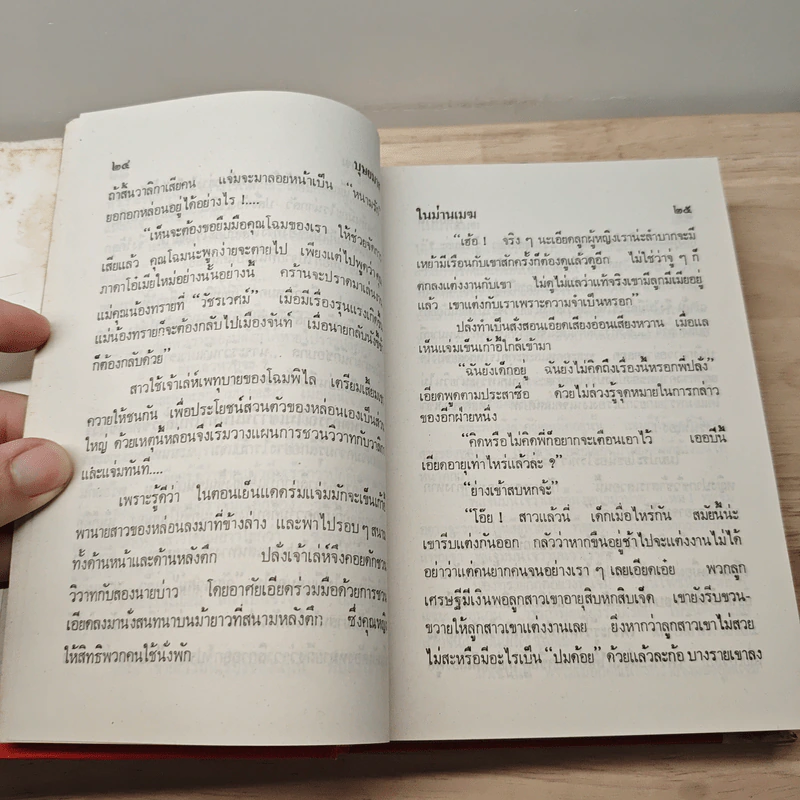 ๒๔
ถ้าสิ้นวาลิกาเสียคน แจ่มจะมาลอยหน้าเป็น “หนามยัก
ยอกอกหล่อนอยู่ได้อย่างไร !....
“เห็นจะต้องขอยืมมือคุณโฉมของเรา ให้ช่วยจัดการ
เสียแล้ว คุณโฉมน่ะพูดง่ายจะตายไป เพียงแต่ไปพูดว่าคุณ
ภาดาโอ๋เมียใหม่อย่างนั้นอย่างนี้ คร้านจะปราดมาเล่นงาน
แม่คุณน้องทรายที่ “วัชรเวศม์” เมื่อมีเรื่องรุนแรงเกิดขึ้น
แม่น้องทรายก็จะต้องกลับไปเมืองจันท์ เมื่อนายกลับนังขี้ข้า
ก็ต้องกลับด้วย”
สาวใช้เจ้าเล่ห์เพทุบายของโฉมพิไล เตรียมเสี้ยมเขา
ควายให้ชนกัน เพื่อประโยชน์ส่วนตัวของหล่อนเองเป็นส่วน
ใหญ่ ด้วยเหตุนี้หล่อนจึงเริ่มวางแผนการชวนวิวาทกับวาลิกา
และแจ่มทันที....
เพราะรู้ดีว่า ในตอนเย็นแดดร่มแจ่มมักจะเข็นเก้าอี้
พานายสาวของหล่อนลงมาที่ข้างล่าง และพาไปรอบ ๆ สนาม
ทั้งด้านหน้าและด้านหลังตึก ปลั่งเจ้าเล่ห์จึงคอยดักชวน
วิวาทกับสองนายบ่าว โดยอาศัยเอียดร่วมมือด้วยการชวน
เอียดลงมานั่งสนทนาบนม้ายาวที่สนามหลังตึก ซึ่งคุณหญิง
ให้สิทธิพวกคนใช้นั่งพัก
ในม่านเมฆ ๒๕
“เฮ้อ ! จริง ๆ นะเอียดลูกผู้หญิงเราน่ะลำบากจะมี
เหย้ามีเรือนกับเขาสักครั้งก็ต้องดูแล้วดูอีก ไม่ใช่ว่าจู่ ๆ ก็
ตกลงแต่งงานกับเขา ไม่ดูไม่แลว่าแท้จริงเขามีลูกมีเมียอยู่
แล้ว เขาแต่งกับเราเพราะความจำเป็นหรอก”
ปลั่งทำเป็นสั่งสอนเอียดเสียงอ่อนเสียงหวาน เมื่อแล
เห็นแจ่มเข็นเก้าอี้ใกล้เข้ามา
“ฉันยังเด็กอยู่ ฉันยังไม่คิดถึงเรื่องนี้หรอกพี่ปลั่ง”
เอียดพูดตามประสาซื่อ ด้วยไม่ล่วงรู้จุดหมายในการกล่าว
ของอีกฝ่ายหนึ่ง
“คิดหรือไม่คิดพี่ก็อยากจะเตือนเอาไว้ เออปีนี้
เอียดอายุเท่าไหร่แล้วล่ะ ?”
“ย่างเข้าสบหกจ้ะ”
“โอ๊ย ! สาวแล้วนี่ เด็กเมื่อไหร่กัน สมัยนี้น่ะ
เขารีบแต่งกันออก กลัวว่าหากขืนอยู่ช้าไปจะแต่งงานไม่ได้
อย่าว่าแต่คนยากคนจนอย่างเรา ๆ เลยเอียดเอ๋ย พวกลูก
เศรษฐีมีเงินพอลูกสาวเขาอายุสิบหกสิบเจ็ด เขายังรีบขวน-
ขวายให้ลูกสาวเขาแต่งงานเลย ยิ่งหากว่าลูกสาวเขาไม่สวย
ไม่สะหรือมีอะไรเป็น “ปมด้อย” ด้วยแล้วละก้อ บางรายเขาลง